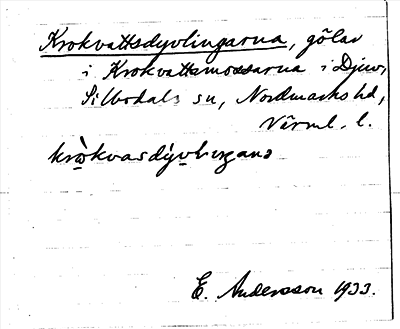 Krokvattsdyvlingarna, gölar
i Krokvattsmossarna i Djuv,
Silbodals sn, Nordmarks hd,
Värml. l.
kròkvasdývlıŋana
E. Andersson 1933.